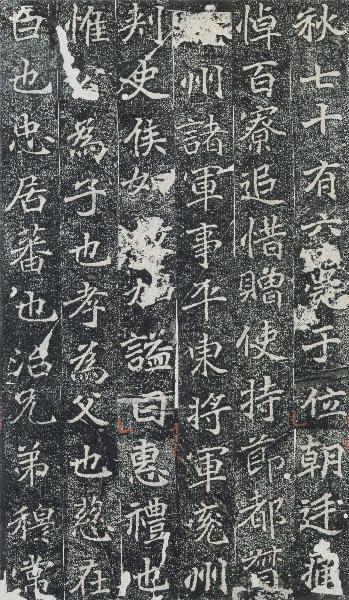 秋七十有六薨于位朝廷痛
悼百寮追惜贈使持節都督
州諸軍事平東將軍兗州
刾史侯如加謚曰惠禮也
惟公為子也孝為父也慈在
臣也忠居蕃也治兄弟穆常